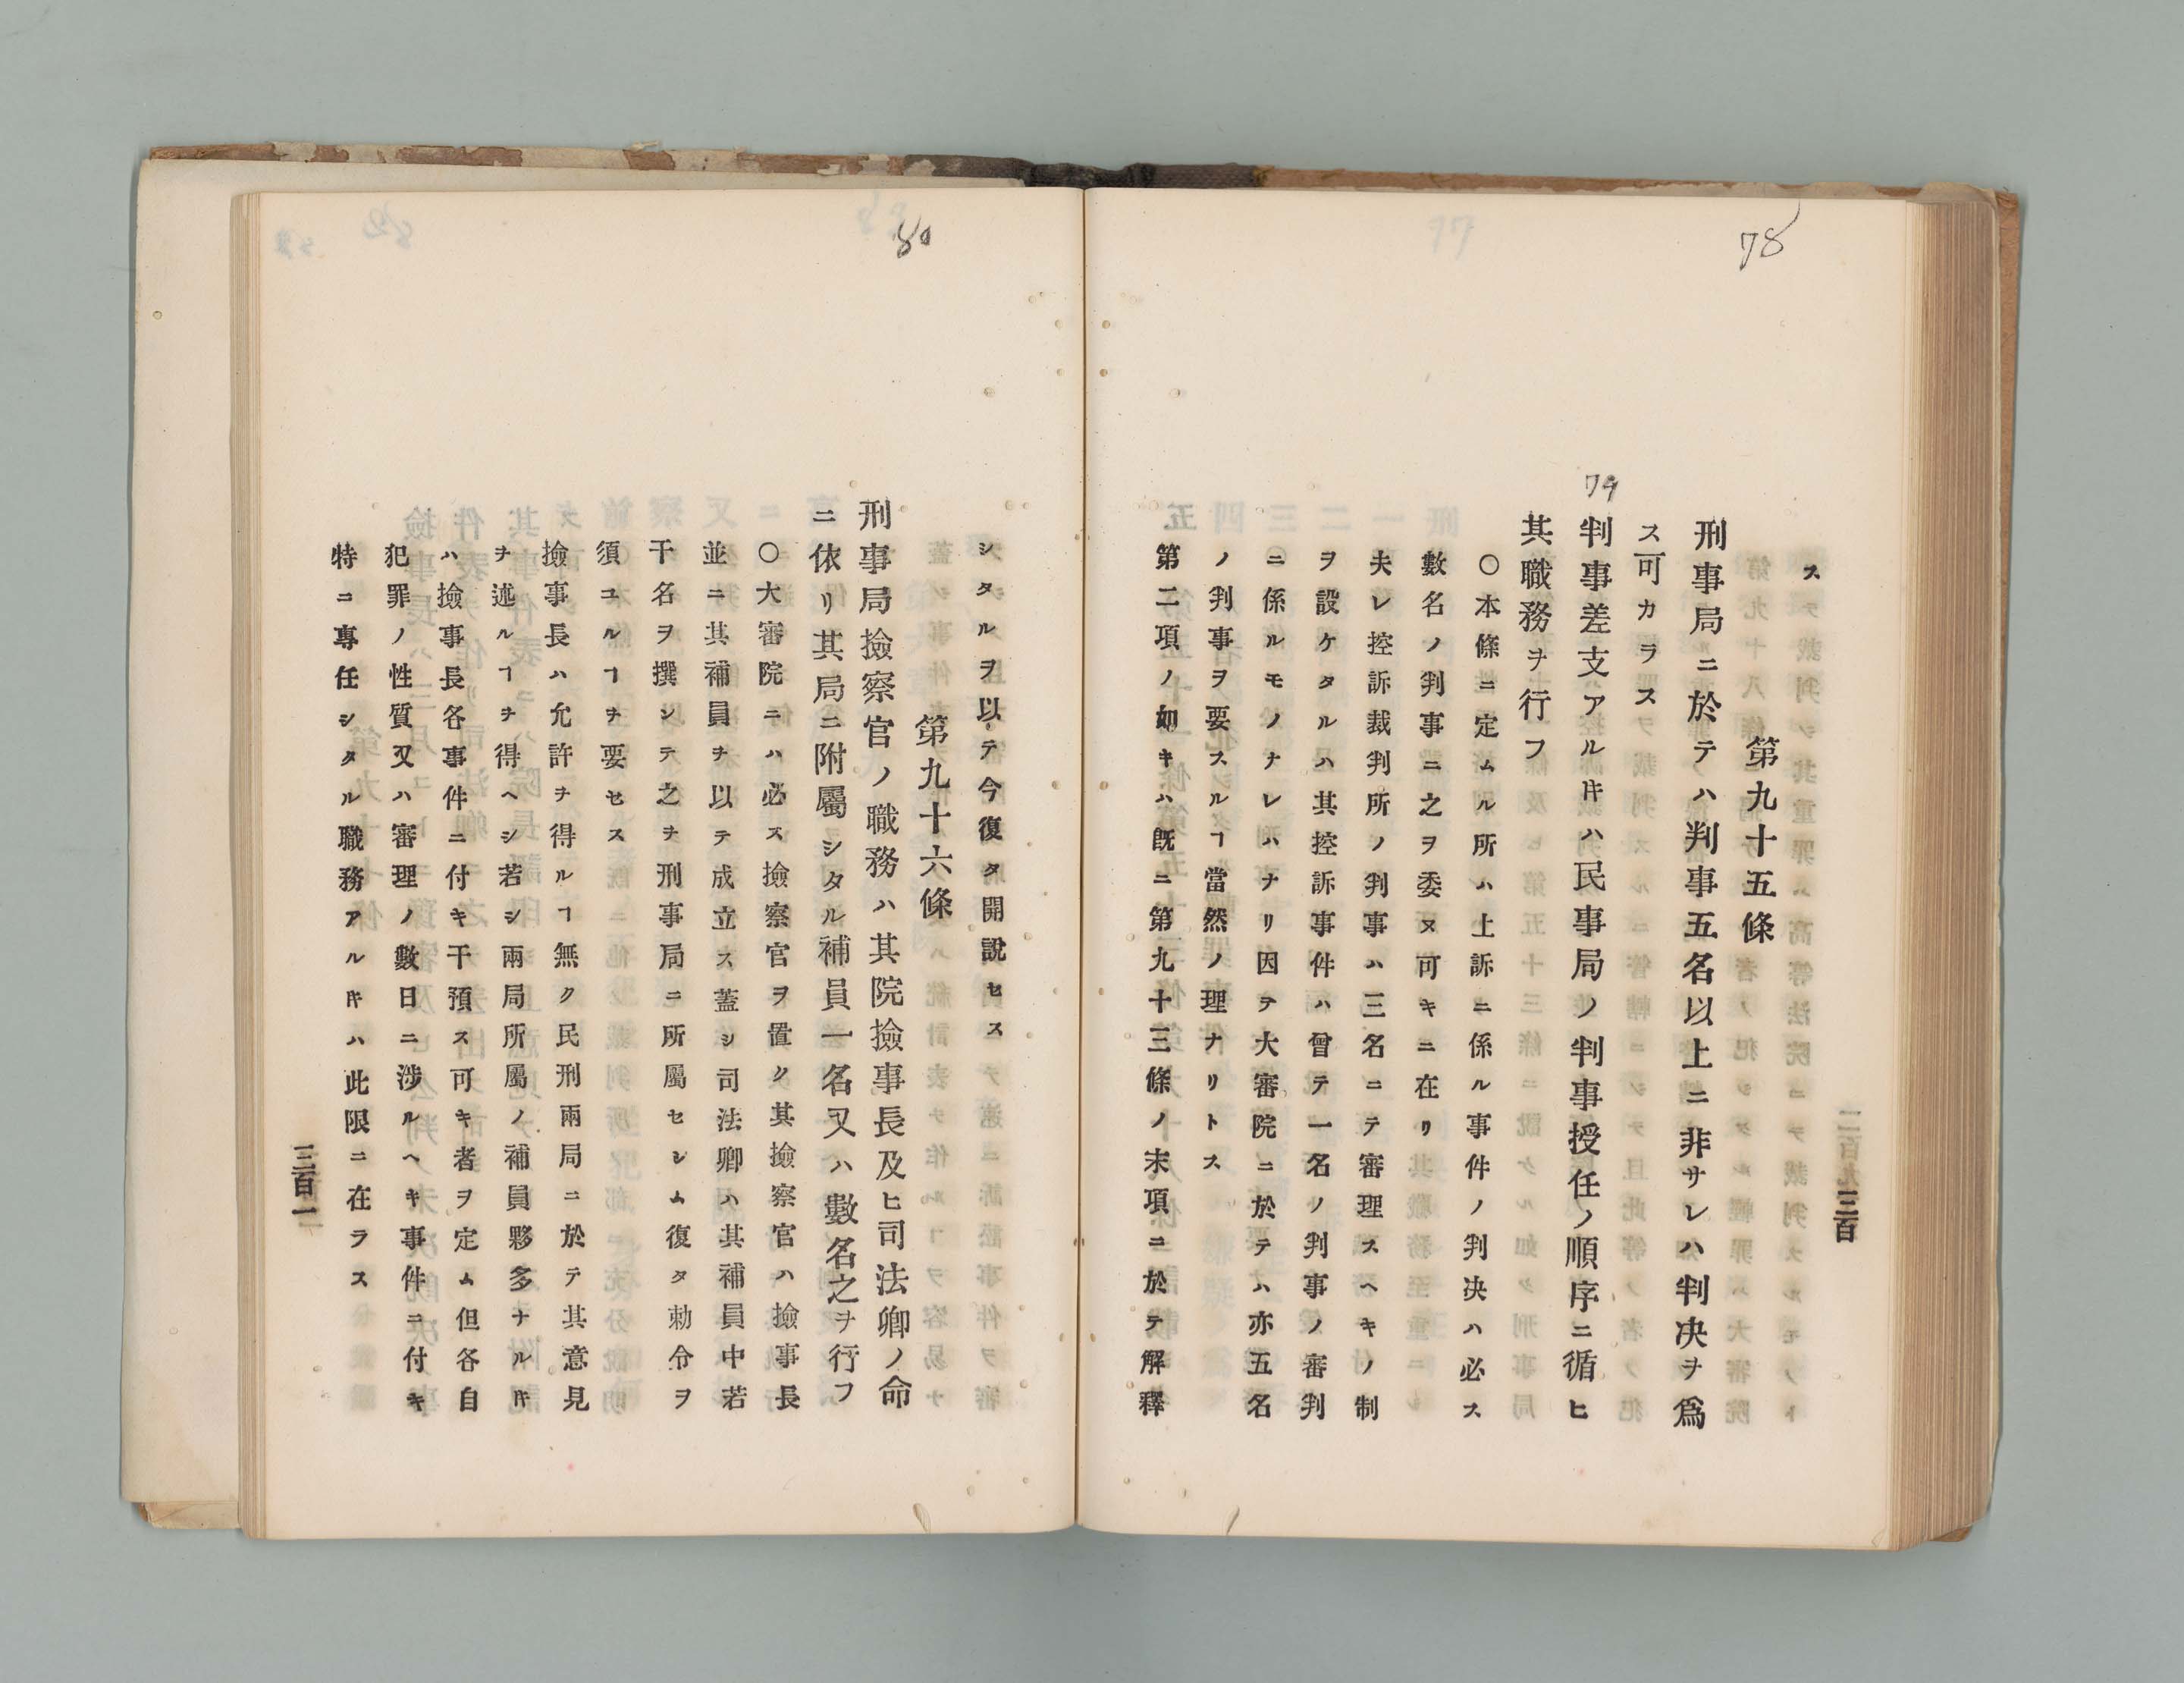 78
ス
第九十五條
刑事局ニ於テハ判事五名以上ニ非サレハ判决ヲ爲
ス可カラス
79
判事差支アル𪜈ハ民事局ノ判事授任ノ順序ニ循ヒ
其職務ヲ行フ
〇本條ニ定ムル所ハ上訴ニ係ル事件ノ判决ハ必ス
數名ノ判事ニ之ヲ委ヌ可キニ在リ
夫レ控訴裁判所ノ判事ハ三名ニテ審理スヘキノ制
ヲ設ケタルハ其控訴事件ハ曾テ一名ノ判事ノ審判
ニ係ルモノナレハナリ因テ大審院ニ於テハ亦五名
ノ判事ヲ要スルヿ當然ノ理ナリトス
第二項ノ如キハ既ニ第九十三條ノ末項ニ於テ解釋
三百
80
シタルヲ以テ今復タ開說セス
第九十六條
刑事局撿察官ノ職務ハ其院撿事長及ヒ司法卿ノ命
ニ依リ其局ニ附屬シタル補員一名又ハ數名之ヲ行フ
〇大審院ニハ必ス撿察官ヲ置ク其撿察官ハ撿事長
並ニ其補員ヲ以テ成立ス蓋シ司法卿ハ其補員中若
干名ヲ撰シテ之ヲ刑事局ニ所屬セシム復タ勅令ヲ
須ユルヿヲ要セス
撿事長ハ允許ヲ得ルヿ無ク民刑兩局ニ於テ其意見
ヲ述ルヿヲ得ヘシ若シ兩局所屬ノ補員夥多ナル𪜈
ハ撿事長各事件ニ付キ干預ス可キ者ヲ定ム但各自
犯罪ノ性質又ハ審理ノ數日ニ涉ルヘキ事件ニ付キ
特ニ專任シタル職務アル𪜈ハ此限ニ在ラス
三百一